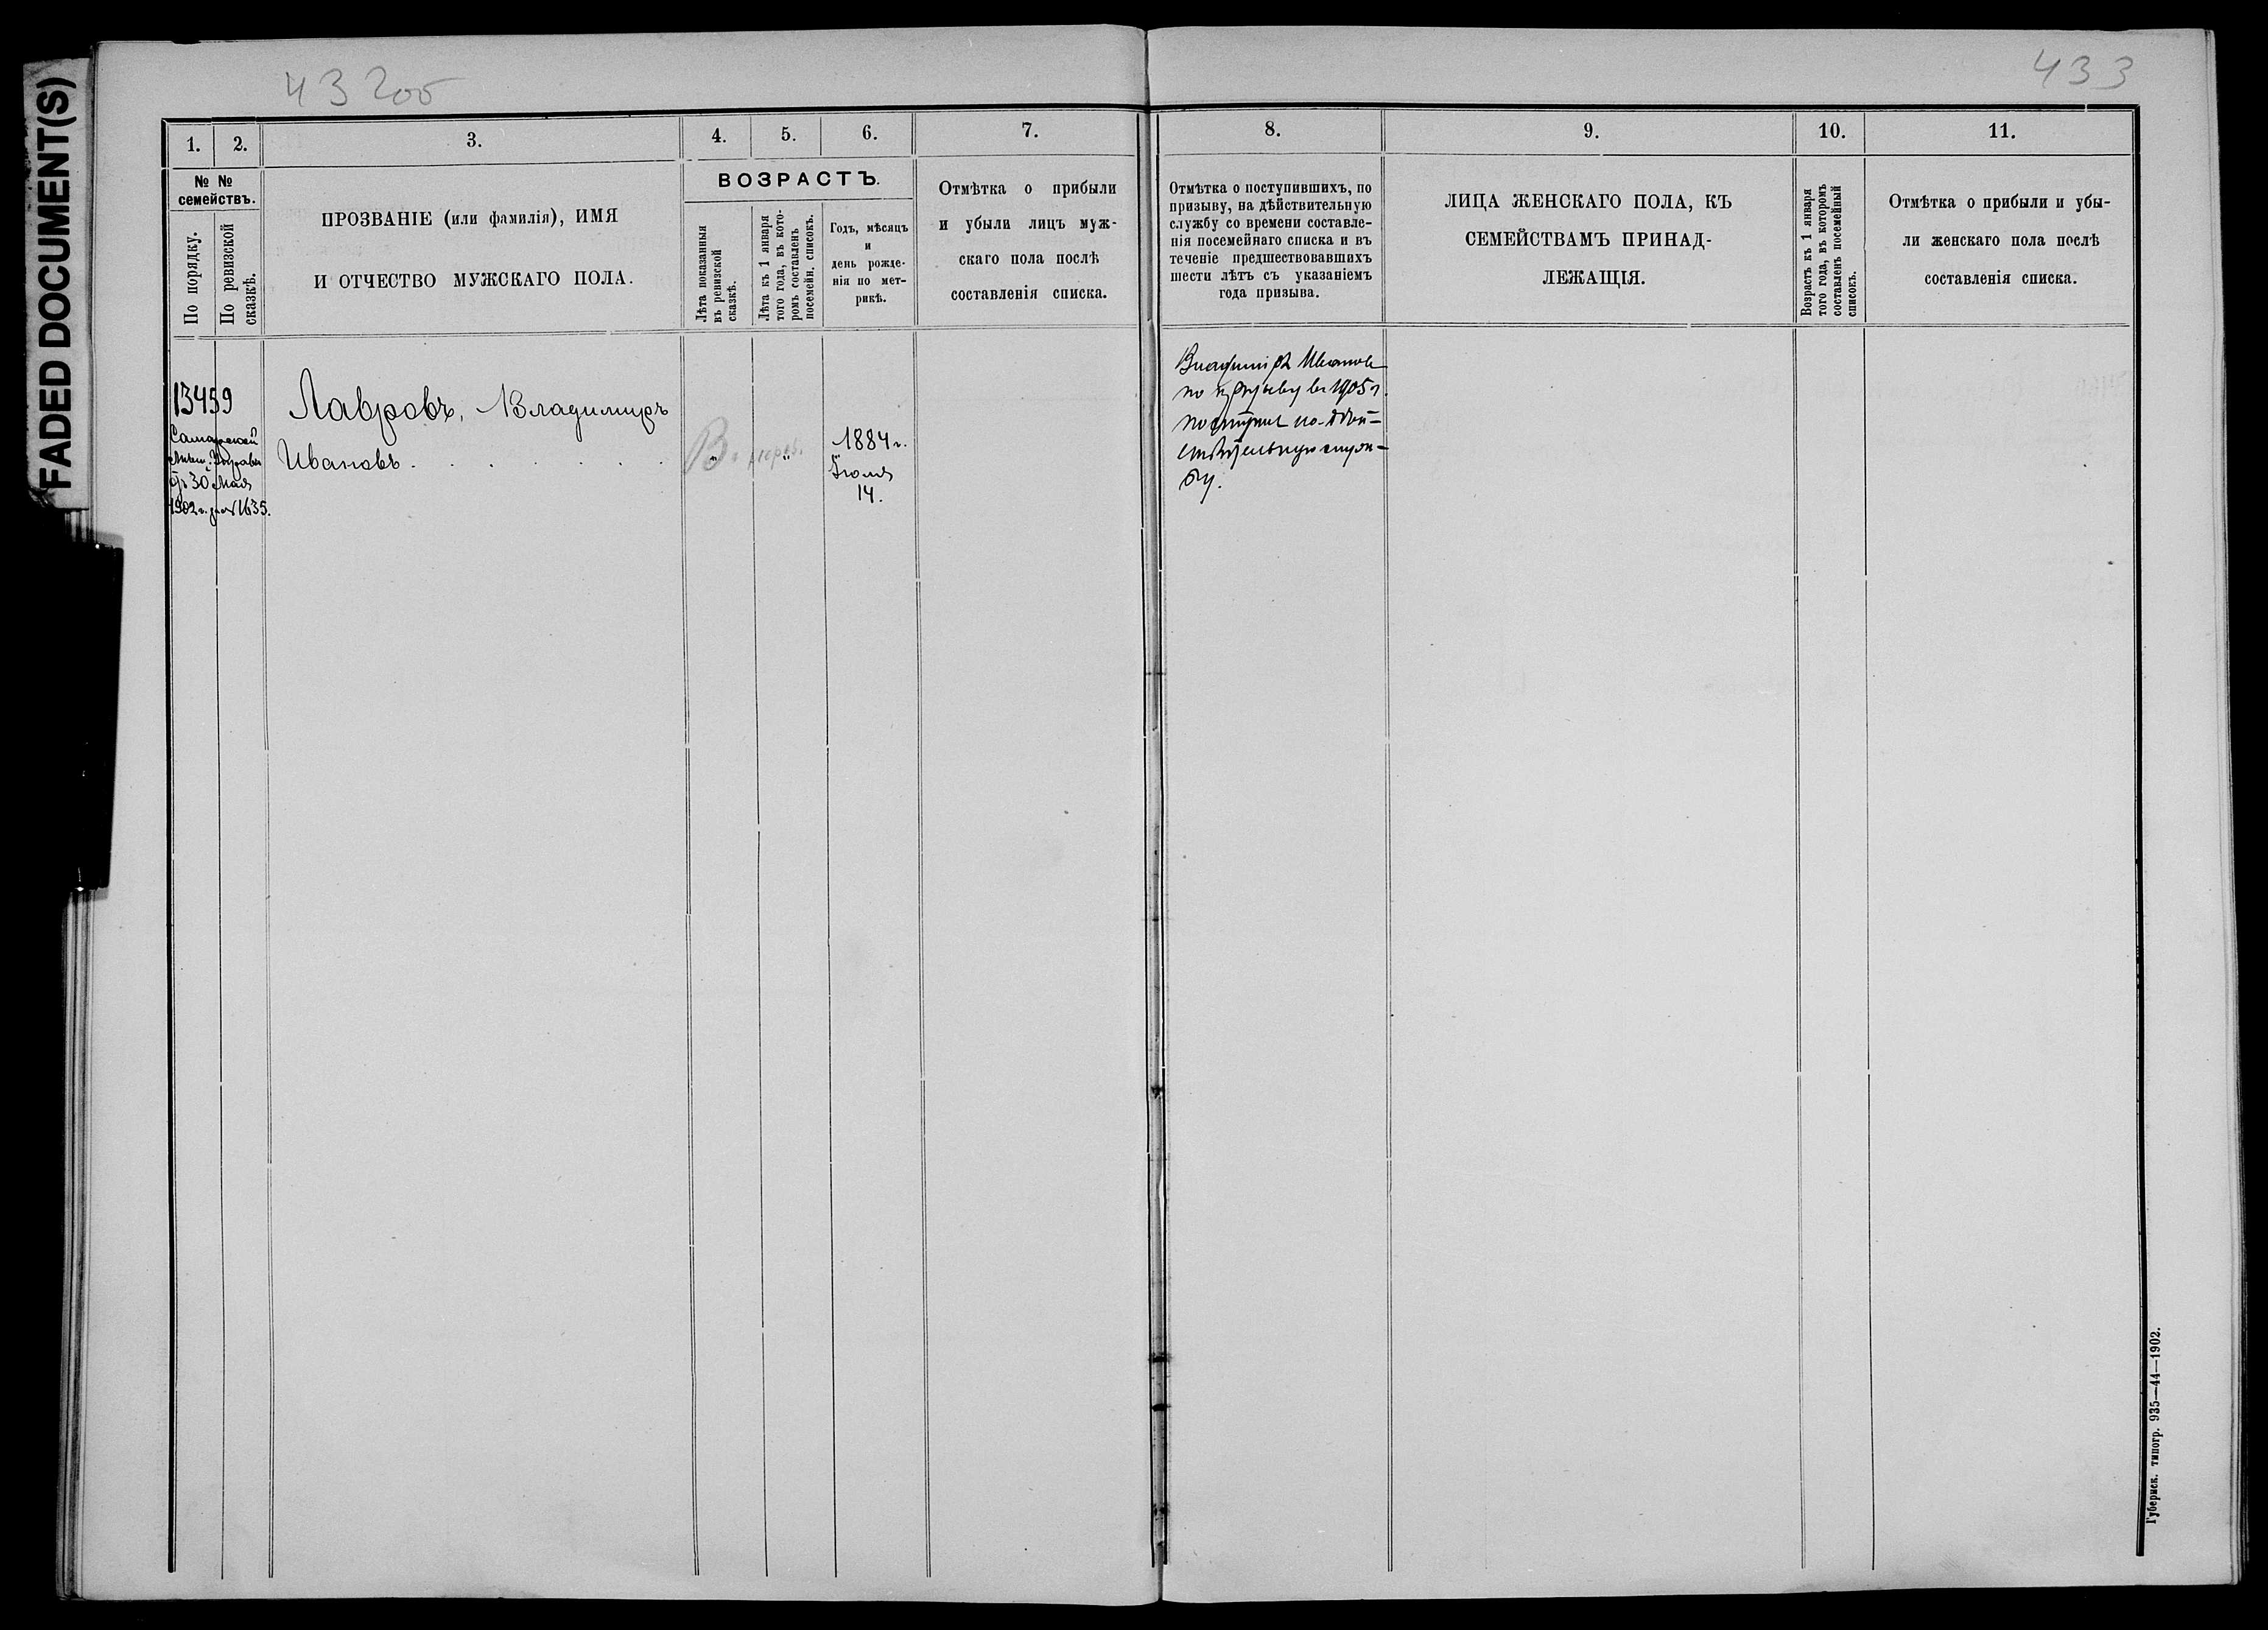 FADED DOCUMENT(S)
432об
433
1.
2.
3.
4.
5.
6.
7.
8.
9.
10.
11.
№ №
семействъ.
По порядку.
По ревизской
сказкѣ.
ПРОЗВАНІЕ (или фамилія), ИМЯ
И ОТЧЕСТВО МУЖСКАГО ПОЛА.
ВОЗРАСТЪ.
Лѣта показанныя
въ ревизской
сказкѣ.
Лѣта къ 1 января
того года, въ кото-
ромъ составленъ
посемейн. списокъ.
Годъ, мѣсяцъ
и
день рожде-
нія по мет-
рикѣ.
Отмѣтка о прибыли
и убыли лицъ муж-
скаго пола послѣ
составленія списка.
Отмѣтка о поступившихъ, по
призыву, на дѣйствительную
службу со времени составле-
нія посемейнаго списка и въ
теченіе предшествовавшихъ
шести лѣтъ съ указаніемъ
года призыва.
ЛИЦА ЖЕНСКАГО ПОЛА, КЪ
СЕМЕЙСТВАМЪ ПРИНАД-
ЛЕЖАЩІЯ.
Возрастъ къ 1 января
того года, въ которомъ
составленъ посемейный
списокъ.
Отмѣтка о прибыли и убы-
ли женскаго пола послѣ
составленія списка.
13459
Самарской
Мѣщ. Управы
отъ 30 Мая
1902 г. за № 1635.
Лавровъ, Владимиръ
Ивановъ . . . . . .
В.
"
"
1884 г.
Іюля
14.
Владиміръ Ивановъ
по призыву въ 1905 г.
поступилъ на дѣй-
ствительную служ-
бу.
Губернск. типогр. 935—44—1902.